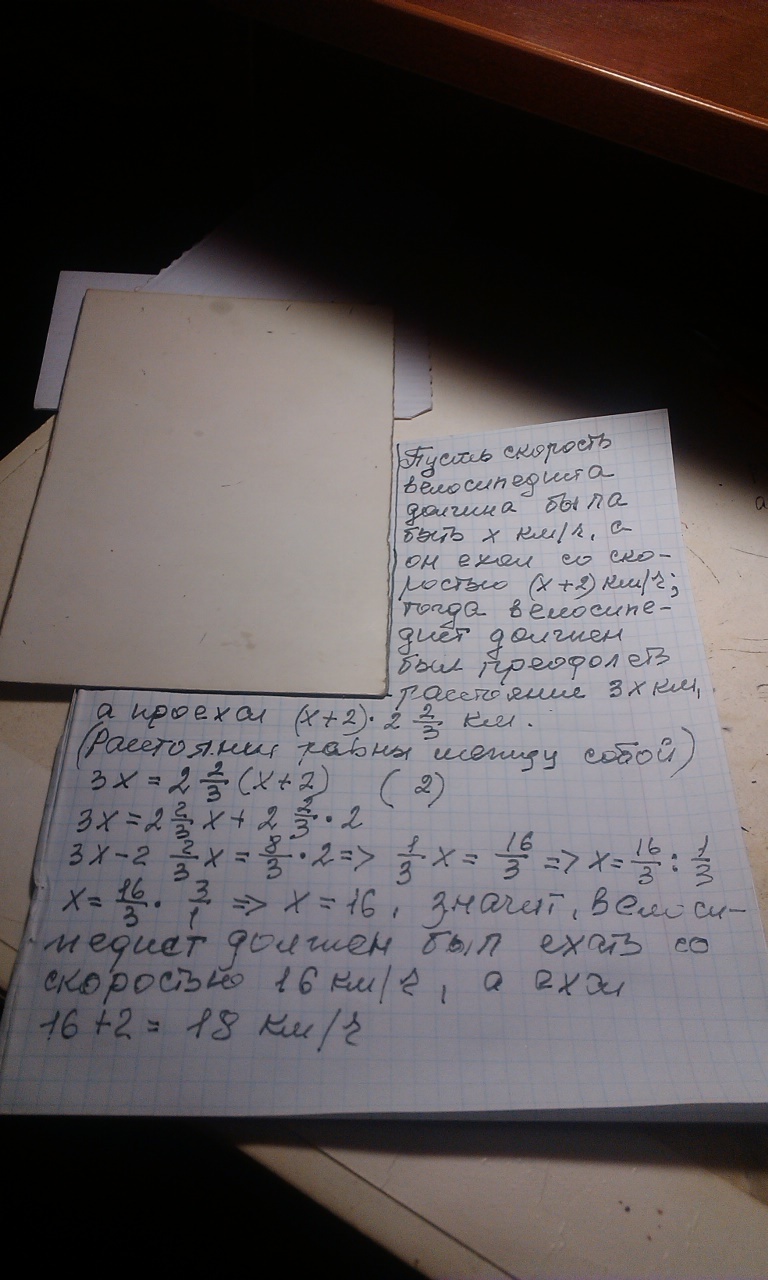 Пусть скорость
велосипедиста
должна была
быть x км/ч, а
он ехал со ско-
ростью (x+2) км/ч;
тогда велосипе-
дист должен
был преодолеть
расстояние 3x км,
а проехал (x+2)·2 2/3 км.
(Расстояния равны между собой)
3x = 2 2/3 (x+2) (2)
3x = 2 2/3 x + 2 2/3 · 2
3x - 2 2/3 x = 8/3 · 2 => 1/3 x = 16/3 => x = 16/3 : 1/3
x = 16/3 · 3/1 => x = 16, значит, велоси-
педист должен был ехать со
скоростью 16 км/ч, а ехал
16 + 2 = 18 км/ч